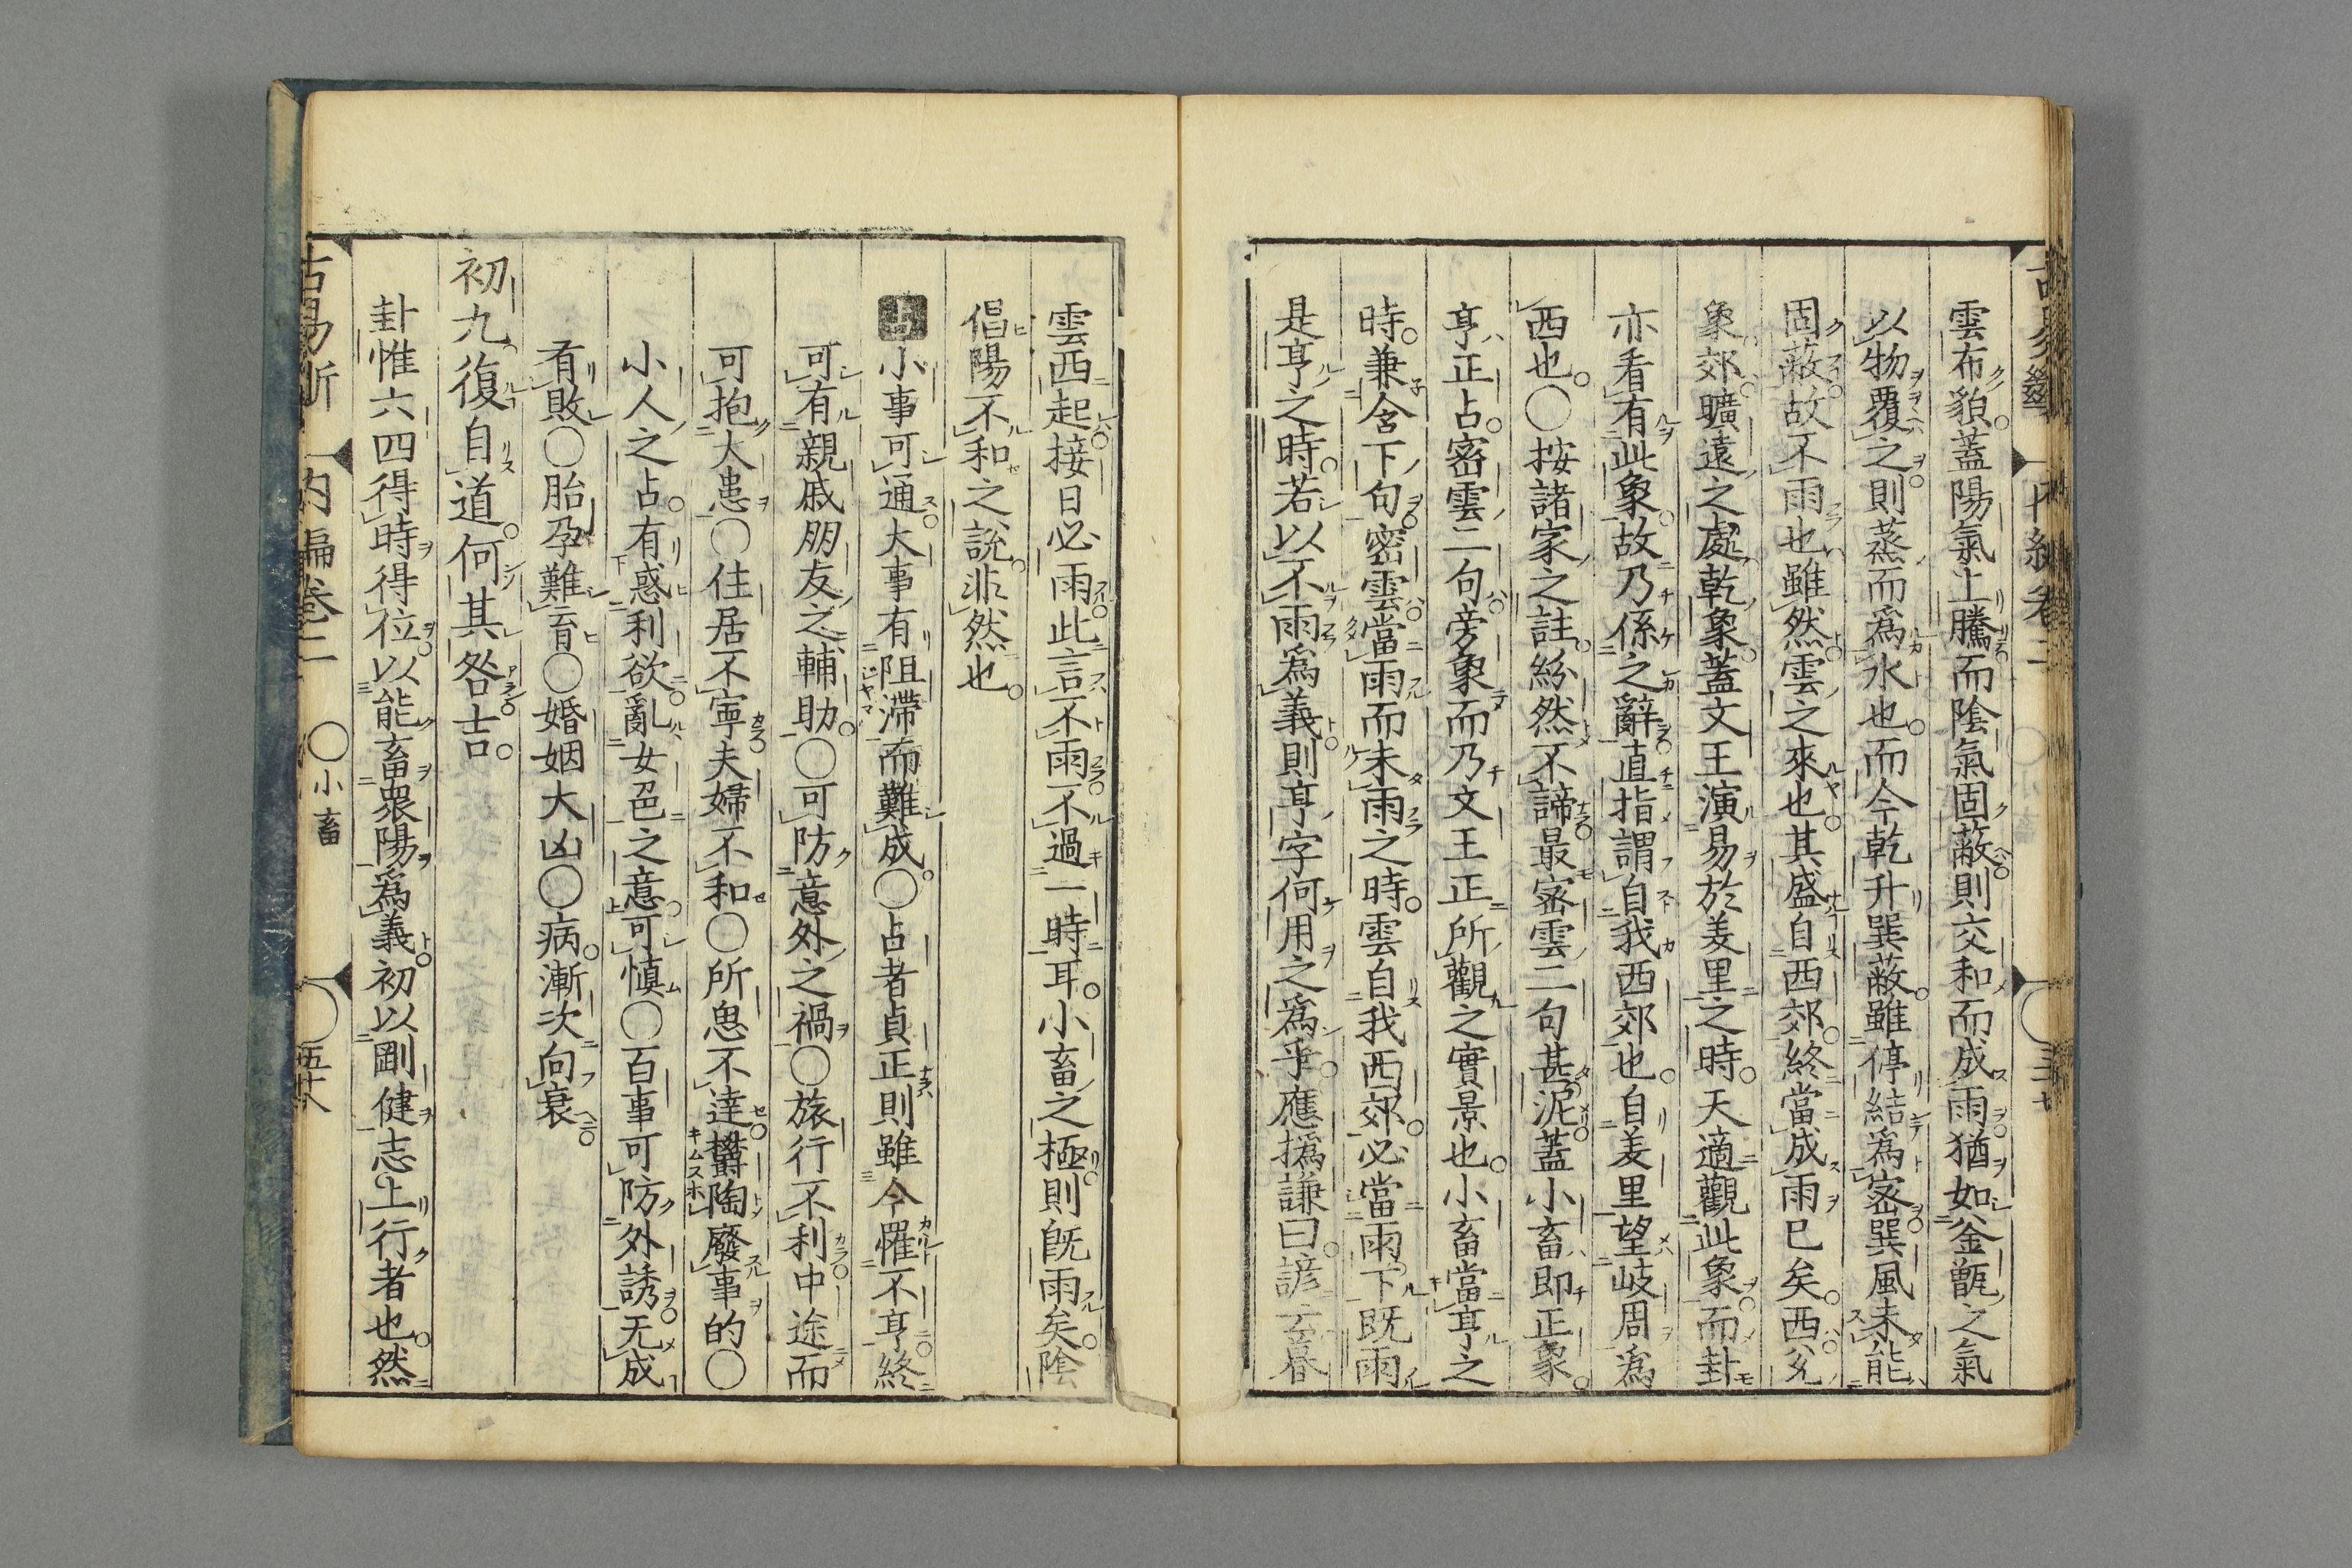 雲布貌蓋陽氣上騰而陰氣固蔽則交和而成雨猶如釜甑之氣
以物覆之則蒸而爲水也而今乾升巽蔽雖停結爲密巽風未能
固蔽故不雨也雖然雲之來也其盛自西郊終當成雨已矣西兌
象郊曠遠之處乾象蓋文王演易於羑里之時天適觀此象而卦
亦看有此象故乃係之辭直指謂自我西郊也自羑里望岐周爲
西也○按諸家之註紛然不諦最密雲二句甚泥蓋小畜即正象
亨正占密雲二句旁象而乃文王正所觀之實景也小畜當亨之
時兼含下句密雲當雨而未雨之時雲自我西郊必當雨下既雨
是亨之時若以不雨爲義則亨字何用之爲乎應撝謙曰諺云暮
雲西起接日必雨此言不雨不過一時耳小畜之極則旣雨矣陰
倡陽不和之說非然也
占小事可通大事有阻滯而難成○占者貞正則雖今罹不亨終
可有親戚朋友之輔助○可防意外之禍○旅行不利中途而
可抱大患○住居不寧夫婦不和○所思不達欝陶廢事的○
小人之占有惑利欲亂女色之意可慎○百事可防外誘无成
有敗○胎孕難育○婚姻大凶○病漸次向衰
初九復自道何其咎吉
卦惟六四得時得位以能畜衆陽爲義初以剛健志上行者也然
古易斷 内編卷二 ○小畜 五十八